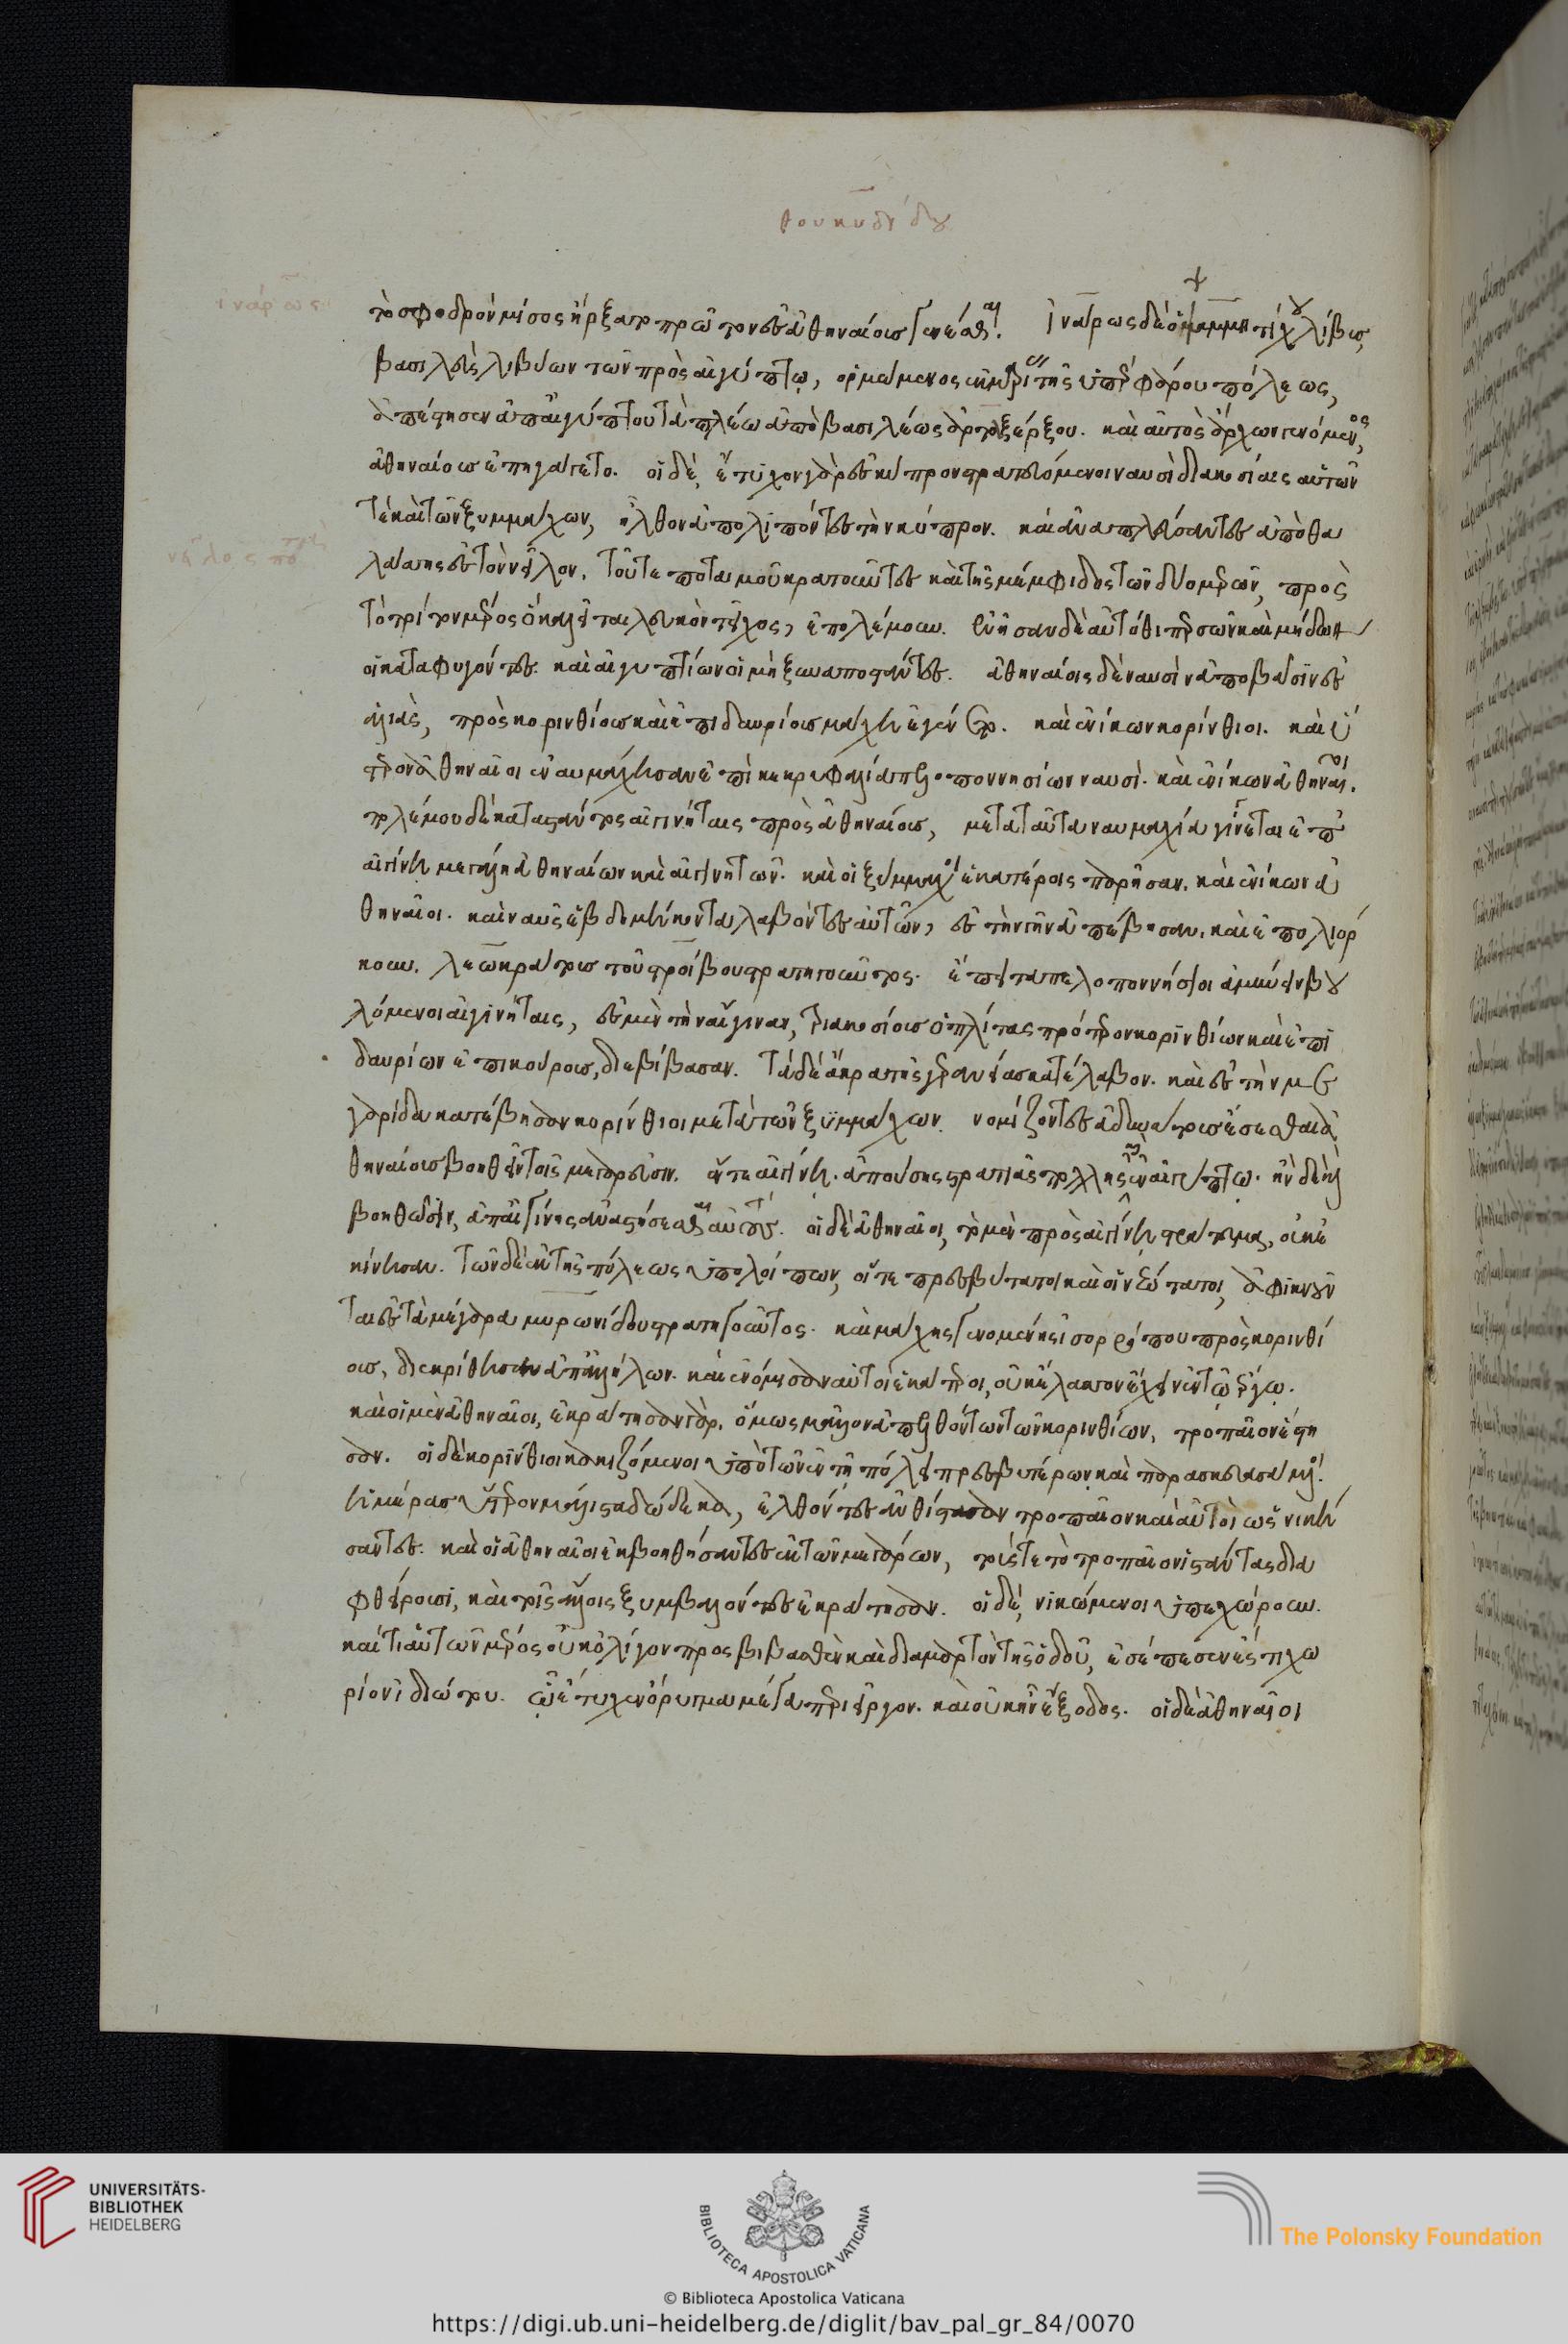 θουκυδίδου
ἰνάρως
τὸ σφοδρὸν μῖσος ἤρξατο πρῶτον ἐς ἀθηναίους γενέσθαι. Ἰνάρως δὲ ὁ ψαμμητίχου λίβυς,
βασιλεὺς λιβύων τῶν πρὸς αἰγύπτῳ, ὁρμώμενος ἐκ τῆς ὑπὲρ φάρου πόλεως,
ἀπέστησεν ἀπ' αἰγύπτου τὰ πλέω ἀπὸ βασιλέως ἀρτοξέρξου. καὶ αὐτὸς ἄρχων γενόμενος,
ἀθηναίους ἐπηγάγετο. οἱ δέ, ἔτυχον γὰρ ἐς κύπρον στρατευόμενοι ναυσὶ διακοσίαις αὐτῶν
τὲ καὶ τῶν ξυμμάχων, ἦλθον ἀπολιπόντες τὴν κύπρον. καὶ ἀναπλεύσαντες ἀπὸ θα
νεῖλος ποτ
λάσσης ἐς τὸν νεῖλον, τοῦ τε ποταμοῦ κρατοῦντες καὶ τῆς μέμφιδος τῶν δύο μερῶν, πρὸς
τὸ τρίτον μέρος ὃ καλεῖται λευκὸν τεῖχος, ἐπολέμουν. ἐνῆσαν δὲ αὐτόθι περσῶν καὶ μήδων
οἱ καταφυγόντες. καὶ αἰγυπτίων οἱ μὴ ξυναποστάντες. ἀθηναίοις δὲ ναυσὶν ἀποβᾶσιν ἐς
ἁλιὰς, πρὸς κορινθίους καὶ ἐπιδαυρίους μάχη ἐγένετο. καὶ ἐνίκων κορίνθιοι. καὶ ὕ
στερον ἀθηναῖοι ἐναυμάχησαν ἐπὶ κεκρυφαλία πελοποννησίων ναυσί. καὶ ἐνίκων ἀθηναῖοι.
πολέμου δὲ καταστάντος αἰγινήταις πρὸς ἀθηναίους, μετὰ ταῦτα ναυμαχία γίνεται ἐπ'
αἰγίνη μεγάλη ἀθηναίων καὶ αἰγινητῶν. καὶ οἱ ξύμμαχοι ἑκατέροις παρῆσαν. καὶ ἐνίκων ἀ
θηναῖοι. καὶ ναῦς ἑβδομήκοντα λαβόντες αὐτῶν, ἐς τὴν γῆν ἀπέβησαν. καὶ ἐπολιόρ
κουν. λεωκράτους τοῦ στροίβου στρατηγοῦντος. ἔπειτα πελοποννήσιοι ἀμύνειν βου
λόμενοι αἰγινήταις, ἐς μὲν τὴν αἴγιναν, τριακοσίους ὁπλίτας πρότερον κορινθίων καὶ ἐπι
δαυρίων ἐπικούρους, διεβίβασαν. τὰ δὲ ἄκρα τῆς γερανείας κατέλαβον. καὶ ἐς τὴν με
γαρίδα κατέβησαν κορίνθιοι μετὰ τῶν ξυμμάχων. νομίζοντες ἀδυνάτους ἔσεσθαι ἀ
θηναίους βοηθεῖν τοῖς μεγαρεῦσιν. ἔν τε αἰγίνη. ἀπούσης στρατιᾶς πολλῆς καὶ ἐν αἰγύπτῳ. ἢν δὲ καὶ
βοηθῶσιν, ἀπ' αἰγίνης ἀναστήσεσθαι αὐτούς. οἱ δὲ ἀθηναῖοι, τὸ μὲν πρὸς αἰγίνη στράτευμα, οὐκ ἐ
κίνησαν. τῶν δὲ ἐκ τῆς πόλεως ὑπολοίπων, οἵ τε πρεσβύτατοι καὶ οἱ νεώτατοι, ἀφικνοῦν
ται ἐς τὰ μέγαρα μυρωνίδου στρατηγοῦντος. καὶ μάχης γενομένης ἰσορρόπου πρὸς κορινθί
ους, διεκρίθησαν ἀπ' ἀλλήλων. καὶ ἐνόμισαν αὐτοὶ ἑκάτεροι, οὐκ ἔλασσον ἔχειν ἐν τῷ ἔργω.
καὶ οἱ μὲν ἀθηναῖοι, ἐκράτησαν γὰρ. ὅμως μᾶλλον ἀπελθόντων τῶν κορινθίων, τροπαῖον ἔστη
σαν. οἱ δὲ κορίνθιοι κακιζόμενοι ὑπὸ τῶν ἐν τῇ πόλει πρεσβυτέρων καὶ παρασκευασάμενοι.
ἡμέραις ὕστερον μάλιστα δώδεκα, ἐλθόντες ἀνθίστασαν τροπαῖον καὶ αὐτοὶ ὡς νική
σαντες. καὶ οἱ ἀθηναῖοι ἐκβοηθήσαντες ἐκ τῶν μεγάρων, τούς τε τὸ τροπαῖον ἱστάντας δια
φθείρουσι, καὶ τοῖς ἄλλοις ξυμβαλόντες ἐκράτησαν. οἱ δὲ, νικώμενοι ὑπεχώρουν.
καί τι αὐτῶν μέρος οὐκ ὀλίγον προσβιβασθὲν καὶ διαμαρτὸν τῆς ὁδοῦ, ἐσέπεσεν ἔς τι χω
ρίον ἰδιώτου. ᾧ ἔτυχεν ὄρυγμα μέγα περιεῖργον. καὶ οὐκ ἦν ἔξοδος. οἱ δὲ ἀθηναῖοι
UNIVERSITÄTS-
BIBLIOTHEK
HEIDELBERG
BIBLIOTECA APOSTOLICA VATICANA
The Polonsky Foundation
© Biblioteca Apostolica Vaticana
https://digi.ub.uni-heidelberg.de/diglit/bav_pal_gr_84/0070